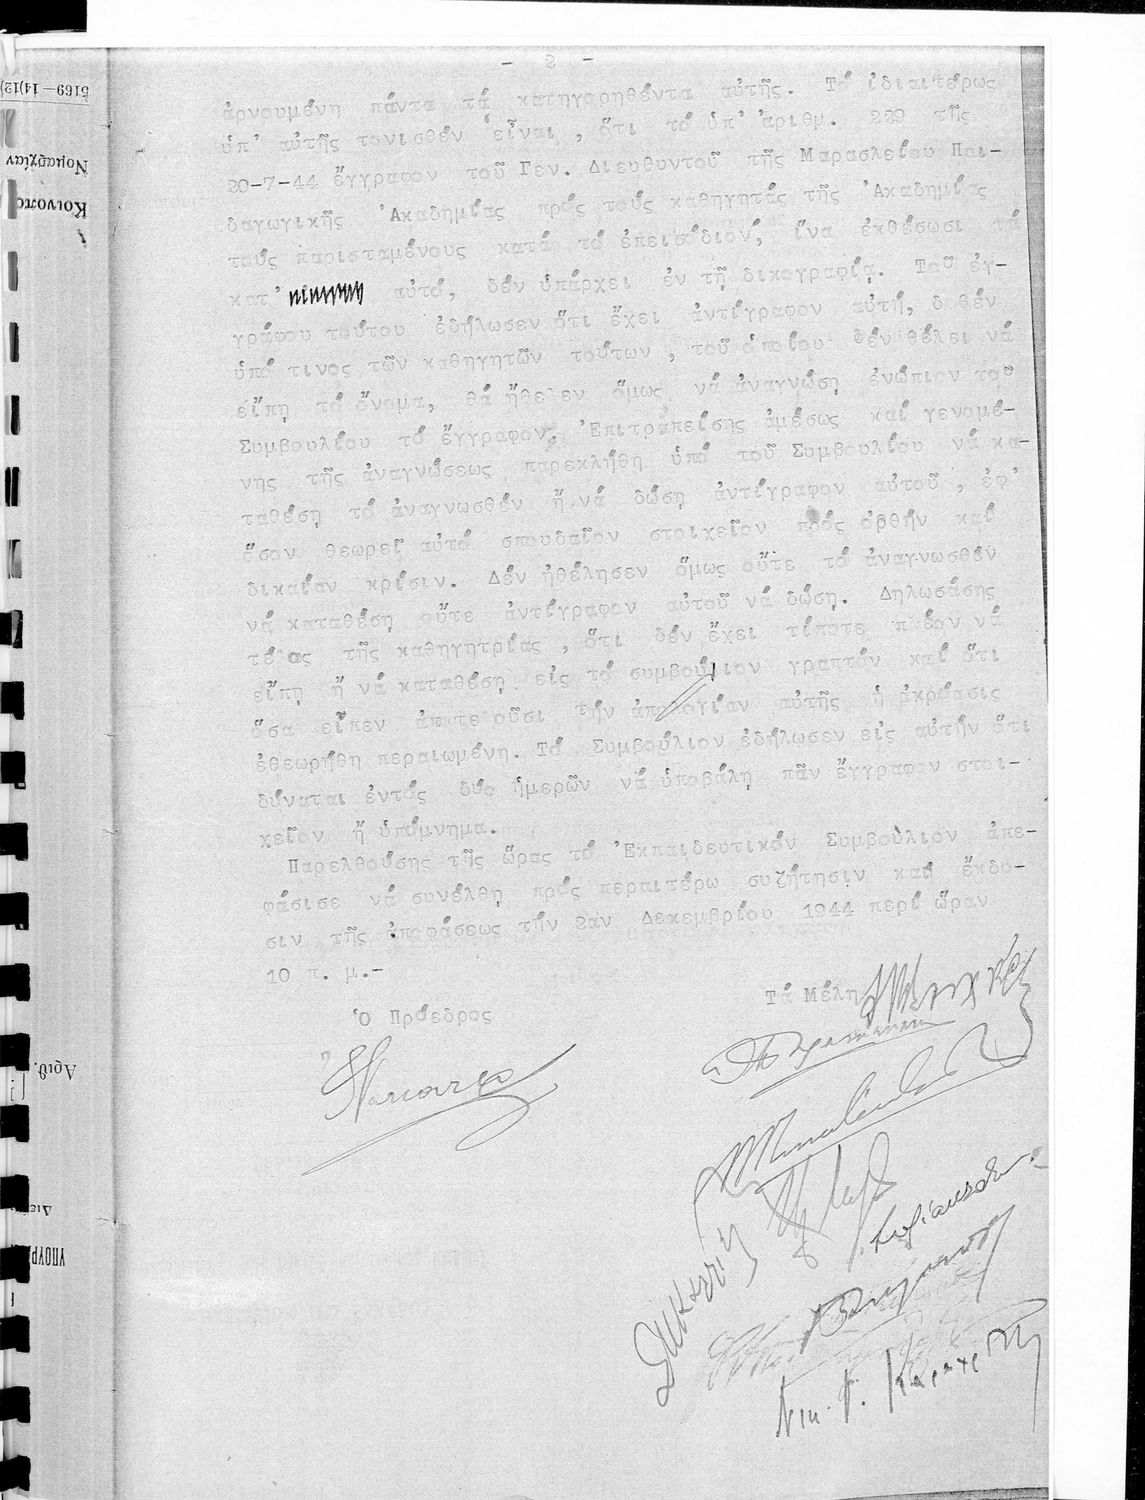 - 2 -
ἀρνουμένη πάντα τά κατηγορηθέντα αὐτῆς. Τό ἰδιαιτέρως
ὑπ' αὐτῆς τονισθέν εἶναι , ὅτι τό ὑπ' ἀριθμ. 229 τῆς
20-7-44 ἔγγραφον τοῦ Γεν. Διευθυντοῦ τῆς Μαρασλείου Παι-
δαγωγικῆς Ἀκαδημίας πρός τούς καθηγητάς τῆς Ἀκαδημίας
τούς παρισταμένους κατά τό ἐπεισόδιον, ἵνα ἐκθέσωσι τά
κατ' αὐτό, δέν ὑπάρχει ἐν τῇ δικογραφίᾳ. Τοῦ ἐγ-
γράφου τούτου ἐδήλωσεν ὅτι ἔχει ἀντίγραφον αὐτή, δοθέν
ὑπό τινος τῶν καθηγητῶν τούτων , τοῦ ὁποίου δέν θέλει νά
εἴπῃ τό ὄνομα, θά ἤθελεν ὅμως νά ἀναγνώσῃ ἐνώπιον τοῦ
Συμβουλίου τό ἔγγραφον. Ἐπιτραπείσης ἀμέσως καί γενομέ-
νης τῆς ἀναγνώσεως παρεκλήθη ὑπό τοῦ Συμβουλίου νά κα-
ταθέσῃ τό ἀναγνωσθέν ἤ νά δώσῃ ἀντίγραφον αὐτοῦ , ἐφ'
ὅσον θεωρεῖ αὐτό σπουδαῖον στοιχεῖον πρός ὀρθήν καί
δικαίαν κρίσιν. Δέν ἠθέλησεν ὅμως οὔτε τό ἀναγνωσθέν
νά καταθέσῃ οὔτε ἀντίγραφον αὐτοῦ νά δώσῃ. Δηλωσάσης
τέλος τῆς καθηγητρίας , ὅτι δέν ἔχει τίποτε πλέον νά
εἴπῃ ἤ νά καταθέσῃ εἰς τό συμβούλιον γραπτόν καί ὅτι
ὅσα εἶπεν ἀποτελοῦσι τήν ἀπολογίαν αὐτῆς ἡ ἀκρόασις
ἐθεωρήθη περαιωμένη. Τό Συμβούλιον ἐδήλωσεν εἰς αὐτήν ὅτι
δύναται ἐντός δύο ἡμερῶν νά ὑποβάλῃ πᾶν ἔγγραφον στοι-
χεῖον ἤ ὑπόμνημα.
Παρελθούσης τῆς ὥρας τό Ἐκπαιδευτικόν Συμβούλιον ἀπε-
φάσισε νά συνέλθῃ πρός περαιτέρω συζήτησιν καί ἔκδο-
σιν τῆς ἀποφάσεως τήν 2αν Δεκεμβρίου 1944 περί ὥραν
10 π. μ.-
Τά Μέλη
Ὁ Πρόεδρος
5169 — 14)12)
Νομαρχίαν
Κοινοπο
Ἀριθ.
ΥΠΟΥΡ